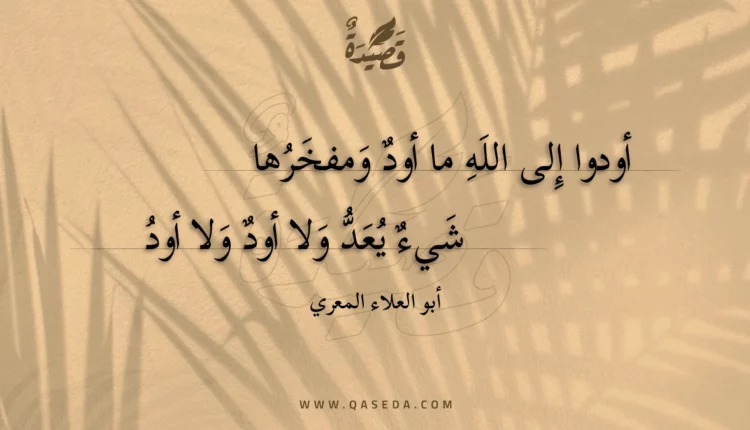 قَصِيْدَةٌ
أودوا إِلى اللَهِ ما أودٌ وَمفخَرُها
شَيءٌ يُعَدُّ وَلا أودٌ وَلا أودُ
أبو العلاء المعري
WWW.QASEDA.COM